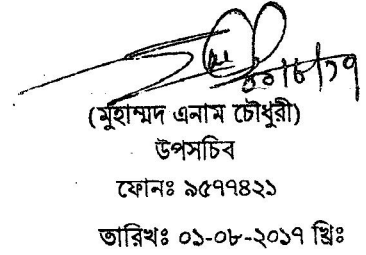 (মুহাম্মদ এনাম চৌধুরী)
উপসচিব
ফোনঃ ৯৫৭৭৪২১
তারিখঃ ০১-০৮-২০১৭ খ্রিঃ